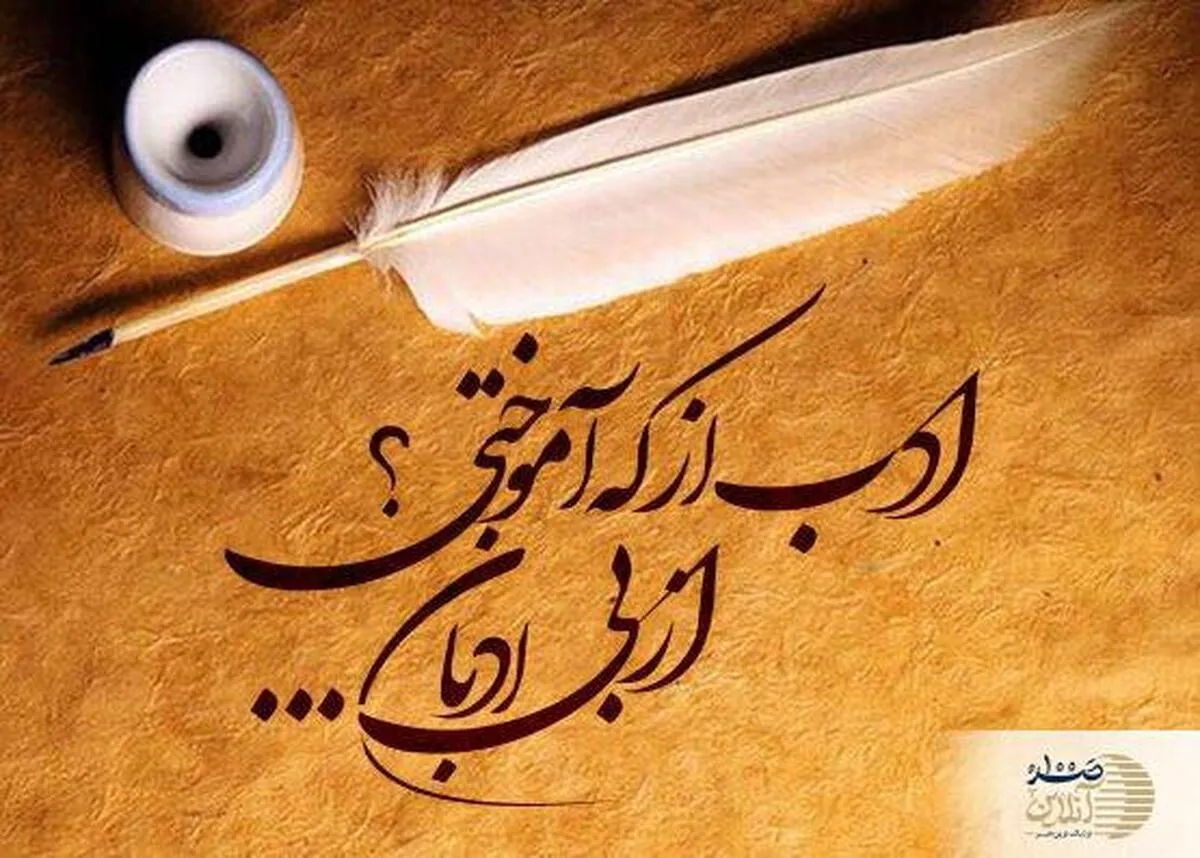 ادب از که آموختی ؟
از بی ادبان ...
آنلاین